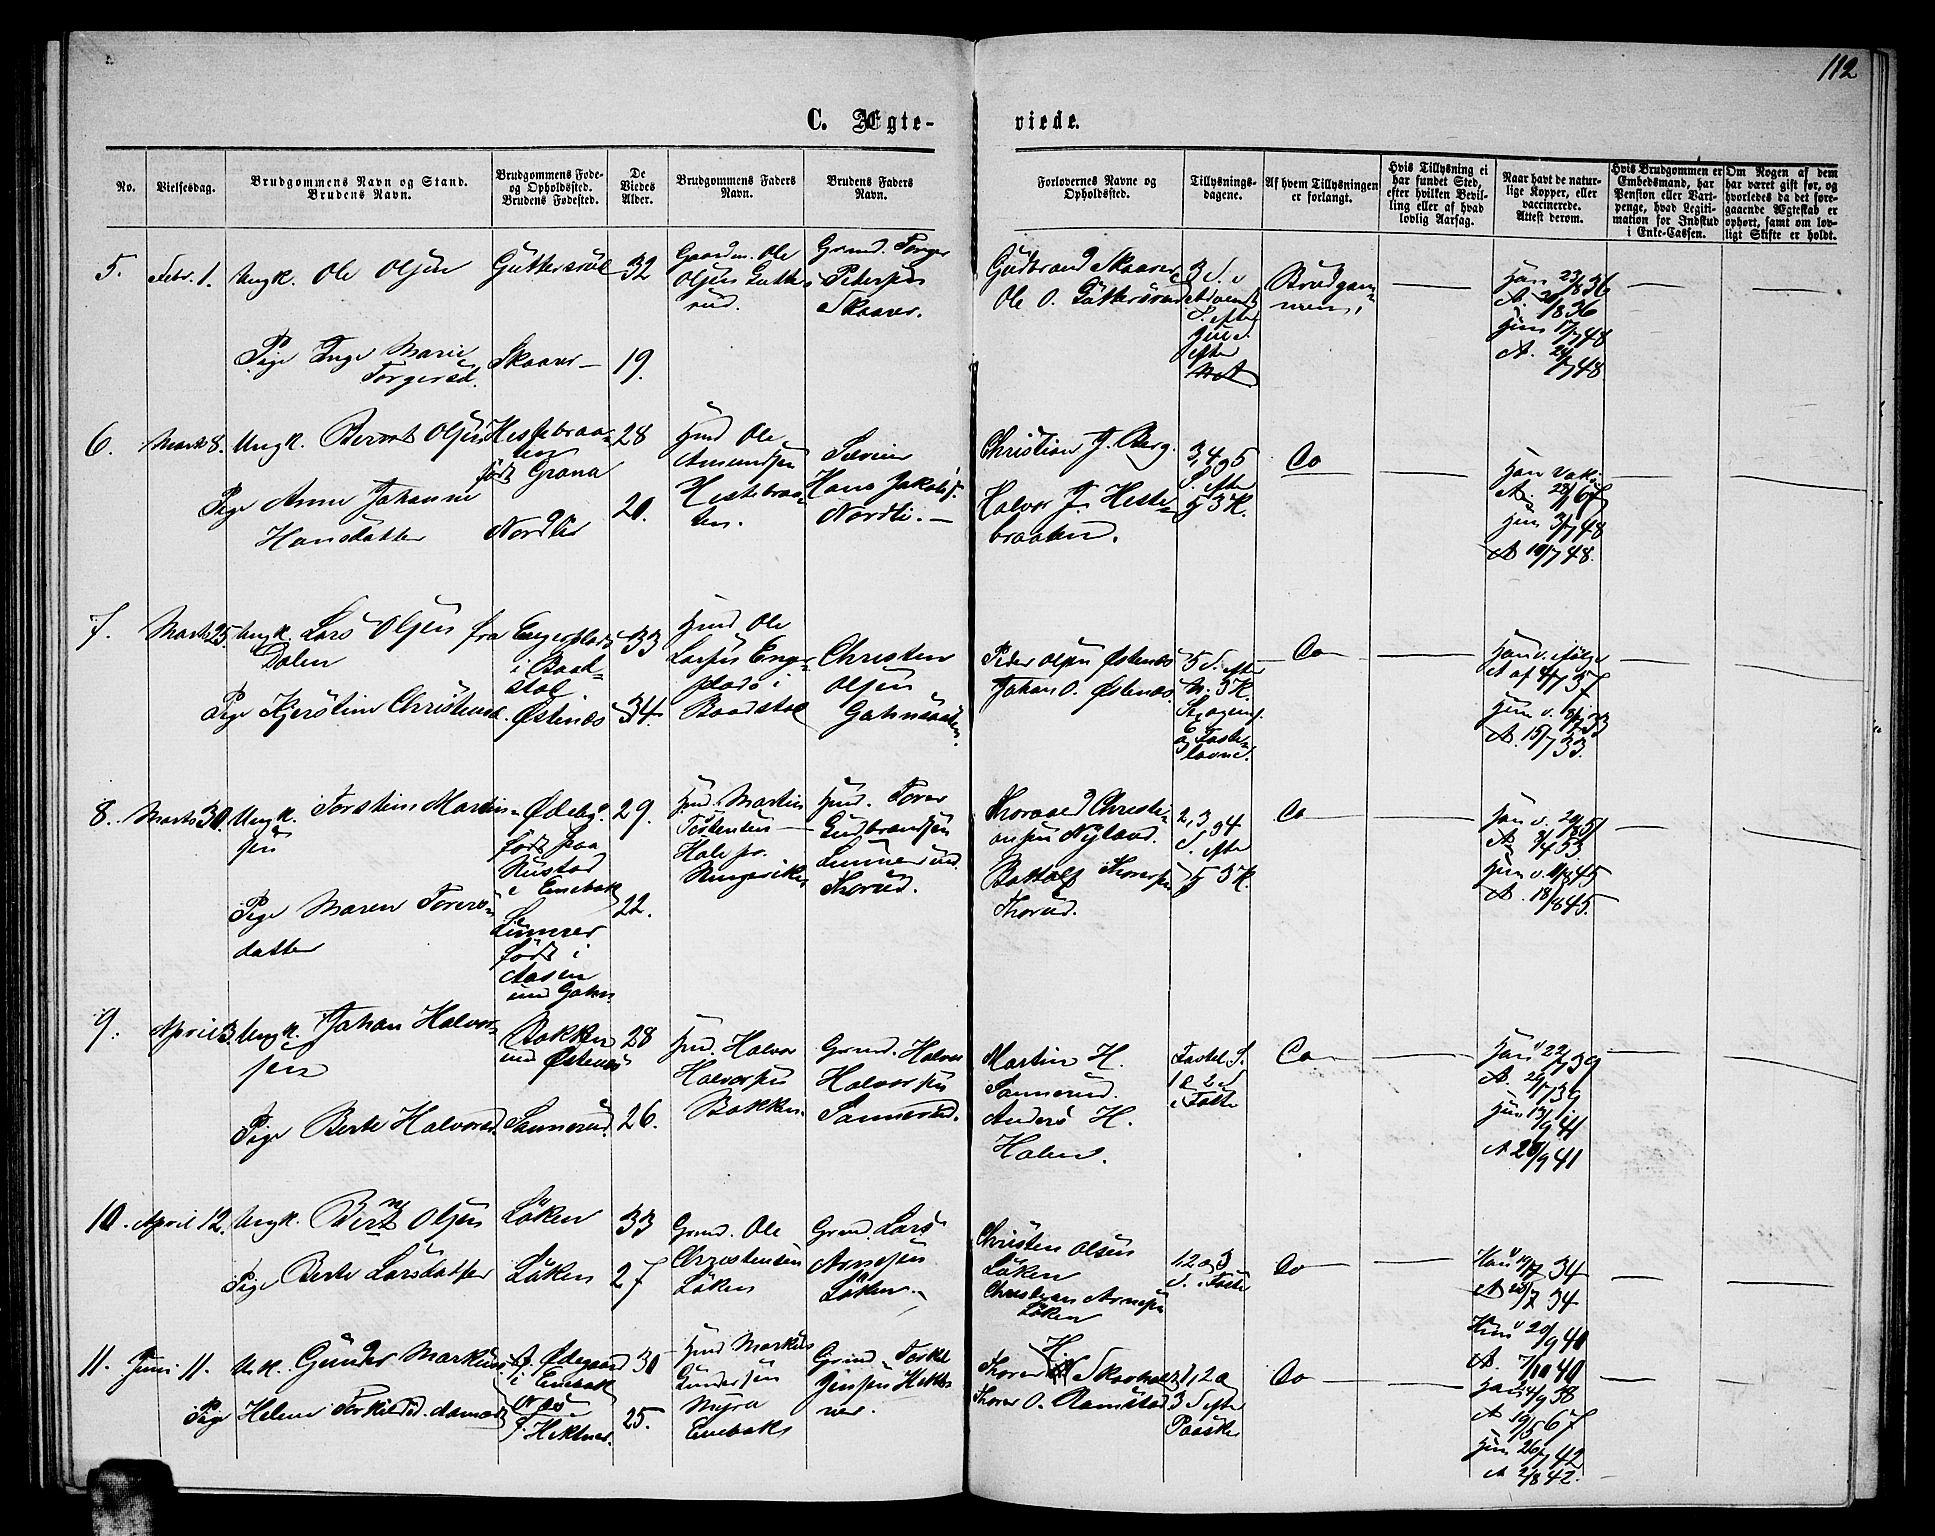 112
C. Ægte-
viede.
No.
Vielsesdag.
Brudgommens Navn og Stand.
Brudens Navn.
Brudgommens Føde-
og Opholdssted.
Brudens Fødested.
De
Viedes
Alder.
Brudgommens Faders
Navn.
Brudens Faders
Navn.
Forlovernes Navne og
Opholdssted.
Tillysnings-
dagene.
Af hvem Tillysningen
er forlangt.
Hvis Tillysning ei
har fundet Sted,
efter hvilken Bevil-
ling eller af hvad
lovlig Aarsag.
Naar havt de natur-
lige Kopper, eller
vaccinerede.
Attest derom.
Hvis Brudgommen er
Embedsmand, har
Pension eller Vart-
penge, hvad Legiti-
mation for Indskud
i Enke-Cassen.
Om Nogen af dem
har været gift før, og
hvorledes da det fore-
gaaende Ægteskab er
ophørt, samt om lov-
ligt Skifte er holdt.
5.
Febr. 1.
Ungk. Ole Olsen
Pige Inge Marie
Torgersd.
Guttersrud
Skaarer
32
19.
Gaardm. Ole
Olsen Gutters
rud.
Grmd. Torger
Pedersen
Skaarer.
Gudbrand Skaarer
Ole O. Guttersrud
3 S. i
Advent
S. efter
Juul
efter
Brudgom-
men.
Han 23/8 36
A. 1836
Hun 17/7 48
A. 24/7 48.
6.
Marts 8.
Ungk. Bernt Olsen
Pige Anne Johanne
Hansdatter
Hestebraa-
ten
født Grana
Nordlie
28
20.
Hmd Ole
Amundsen
Hestebraa-
ten.
Hans Jakobs.
Nordli.
Christian J. Berg.
Halvor J. Heste-
braaten.
3, 4 og 5
S. efter
H 3 K.
Do
Han vak.
A. 28/ 67
Hun 3/7 48
A 10/7 48.
7.
Marts 25.
Ungk. Lars Olsen fra
Dalen
Pige Kjerstine Christensd.
Engerplads
i Baad-
stal
Østenæs
33
34.
Hmd Ole
Larsen Enger
plads i
Baadstal
Christen
Olsen
Peder Olsen Østenæs
Johan O. Østenæs
5 S. efter
H. 3 K.
Sexagens.
og Faste-
lavns.
Do
Han v. ifølge
A af 4/7 37
Hun v.
A. 15/7 33.
8.
Marts 30.
Ungk. Torstein Martin-
sen
Pige Maren Torers-
datter
Ødeby.
født paa
Rustad
i Enebak
født i
Aasen
29.
22.
Hmd. Martin
Tostensen
Hole pr.
Ringerike
Hmd. Torer
Gudbrandsen
Thorud.
Christi-
ansen Nyland.
Thorersen
Thorud.
2, 3
og 4
S. efter
H 3 K.
Do
Han v.
A 3/4 53
Hun v. 45
A. 18/8 45.
9.
April 3
Ungk. Johan Halvor-
sen
Pige Berte Halvorsd.
Bakken
und Østenæs
Sannerud.
28
26.
Hmd. Halvor
Halvorsen
Bakken.
Grmd. Halvor
Halvorsen
Sannerud.
Martin H.
Sannerud.
Anders H.
Holen.
Fastel. S.
1 & 2 S
i Faste
Do
Han v 22/7 39
A. 29/7 39
Hun 13/9 41
A 20/9 41
10.
April 12.
Ungk. Bernt Olsen
Pige Berte Larsdatter
Löken
Löken
33
27
Grmd. Ole
Christensen
Löken
Grmd. Lars
Arnesen
Löken.
Christen Olsen
Löken
Christian Arnesen
Löken
1, 2 og 3
S. i Faste
Do
Han v 34
A 34
Hun v 20/9 40
A. 7/10 40
11.
Juni 11.
Uk. Gunder Markus.
Pige Helene Torkildsd.
Ødegaard
i Enebak
f. Hektner.
30
25.
Hmd Markus
Gundersen
Myra
Enebak
Grmd. Torkel
Jensen Hekt-
ner.
Thorer H. Skavholt
Thorer O. Ramstad
1, 2 og
3 S efter
Paaske
Do
Han 24/9 38
A 19/5 67
Hun 26/7 42
A 2/8 42.